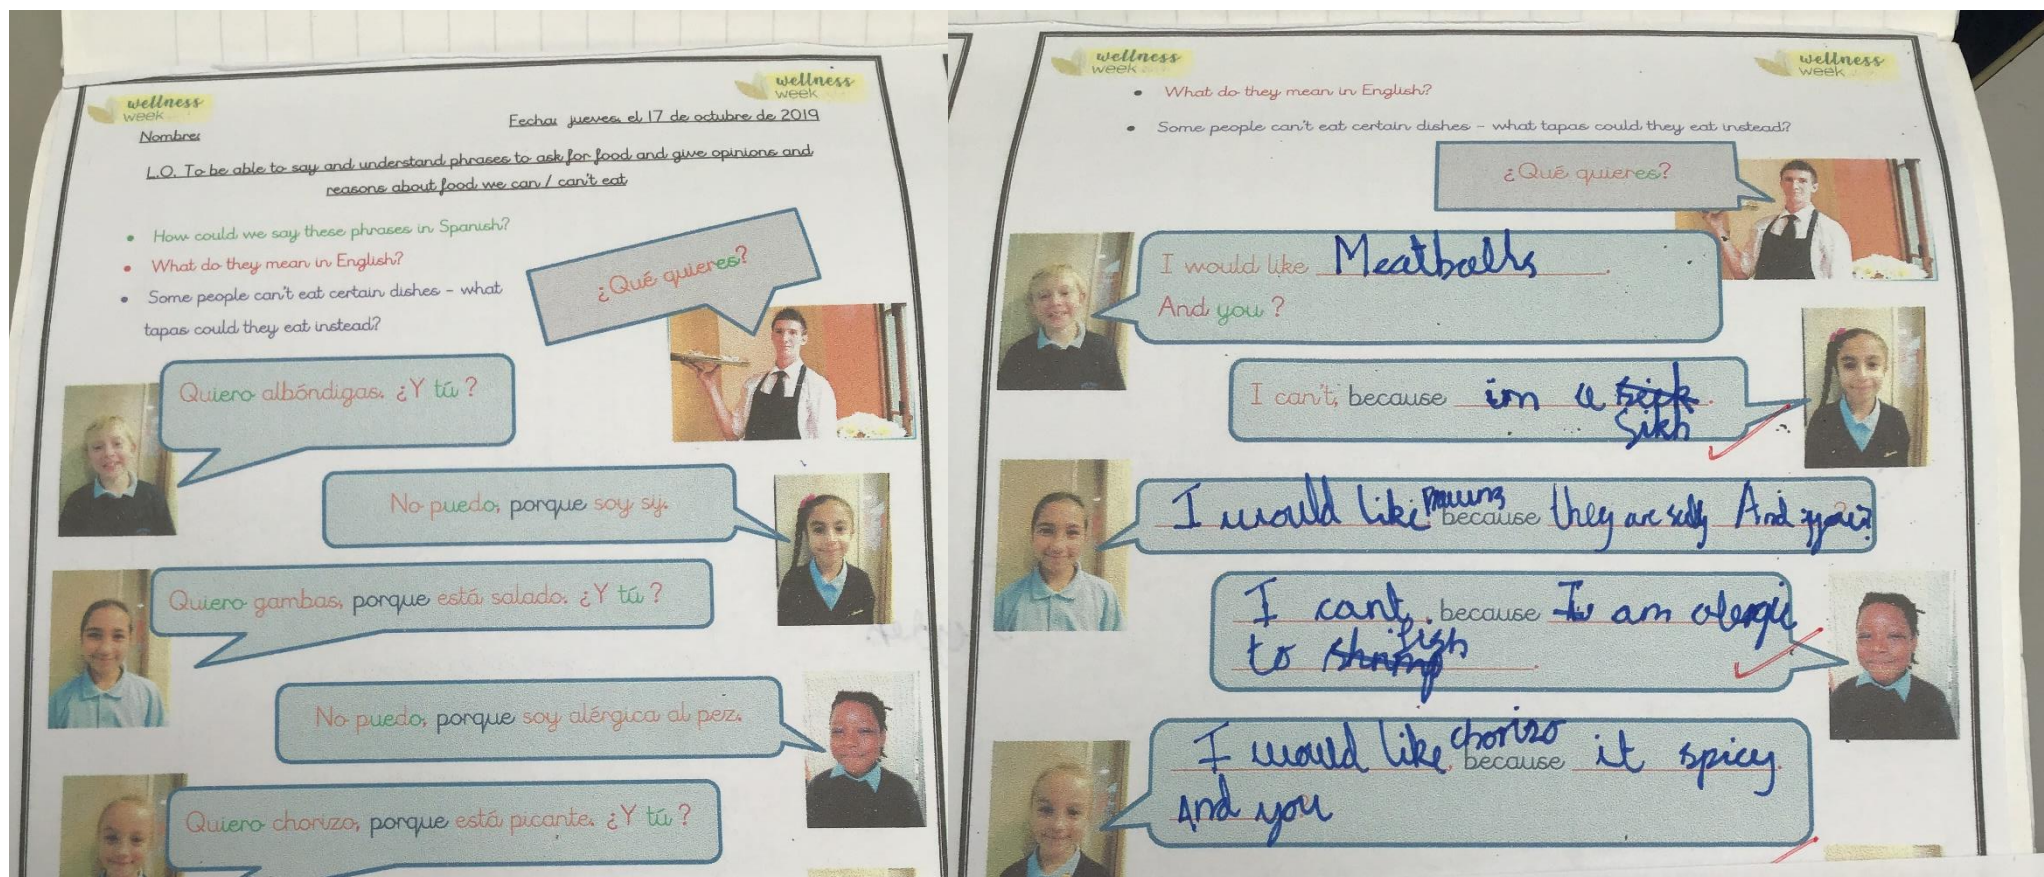 wellness
week
wellness
week
Nombre:
Fecha: jueves, el 17 de octubre de 2019
L.O. To be able to say and understand phrases to ask for food and give opinions and
reasons about food we can / can't eat
• How could we say these phrases in Spanish?
• What do they mean in English?
• Some people can't eat certain dishes – what
tapas could they eat instead?
¿Qué quieres?
Quiero albóndigas. ¿Y tú?
No puedo, porque soy sij.
Quiero gambas, porque está salado. ¿Y tú?
No puedo, porque soy alérgica al pez.
Quiero chorizo, porque está picante. ¿Y tú?
wellness
week
wellness
week
• What do they mean in English?
• Some people can't eat certain dishes – what tapas could they eat instead?
¿Qué quieres?
I would like Meatballs.
And you?
I can't, because im a
Sikh
I would like prawns because they are And you?
I cant, because am alergic
to fish
I would like chorizo because it spicy.
And you